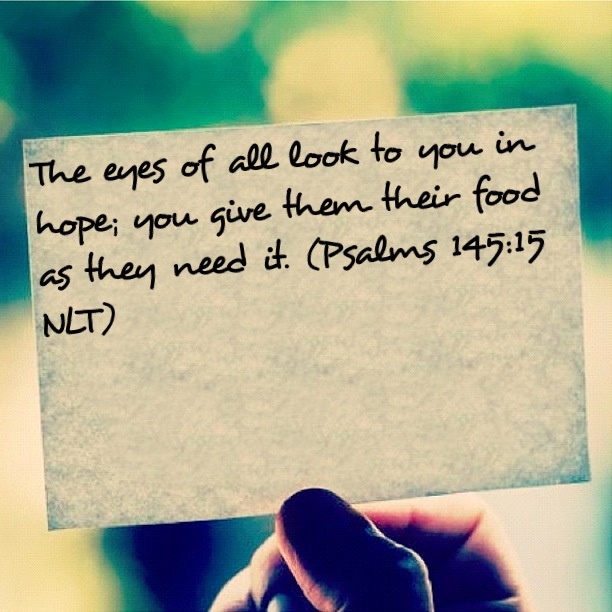 The eyes of all look to you in
hope; you give them their food
as they need it. (Psalms 145:15
NLT)